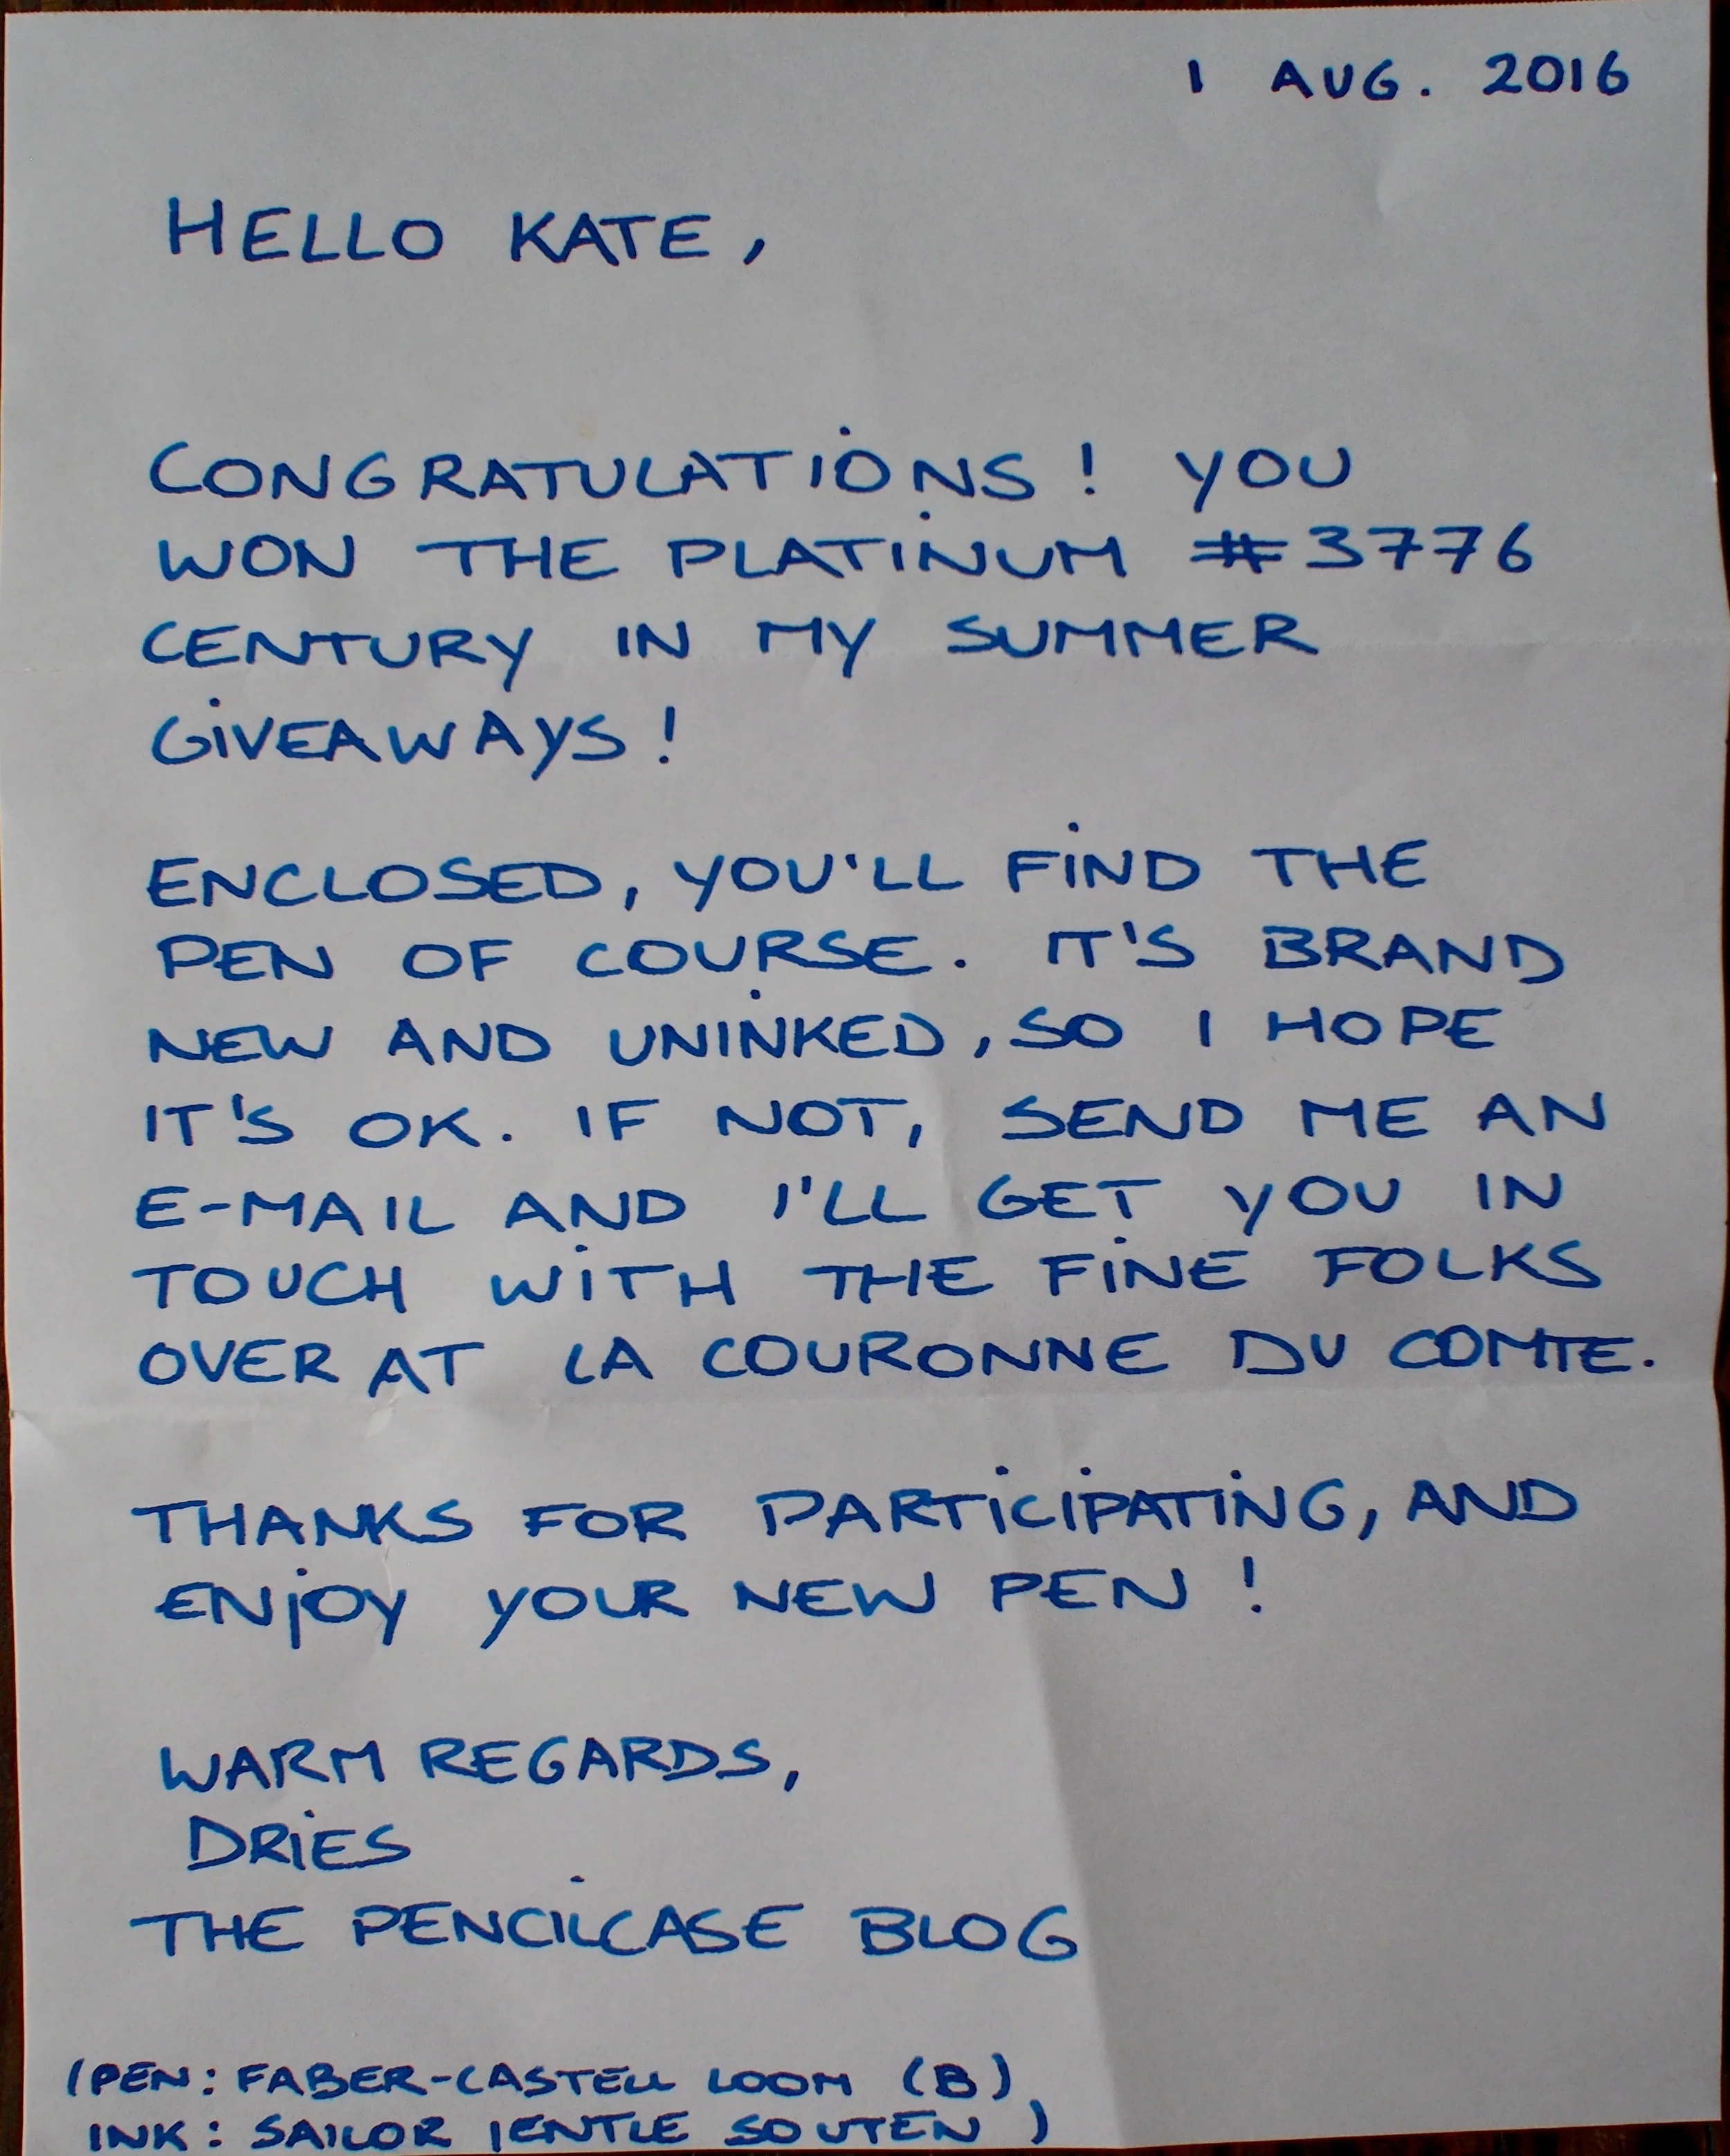 1 AUG. 2016
HELLO KATE,
CONGRATULATIONS! YOU
WON THE PLATINUM #3776
CENTURY IN MY SUMMER
GIVEAWAYS!
ENCLOSED, YOU'LL FIND THE
PEN OF COURSE. IT'S BRAND
NEW AND UNINKED, SO I HOPE
IT'S OK. IF NOT, SEND ME AN
E-MAIL AND I'LL GET YOU IN
TOUCH WITH THE FINE FOLKS
OVER AT LA COURONNE DU COMTE.
THANKS FOR PARTICIPATING, AND
ENJOY YOUR NEW PEN!
WARM REGARDS,
DRIES
THE PENCILCASE BLOG
(PEN: FABER-CASTELL LOOM (B),
INK: SAILOR JENTLE SOUTEN)